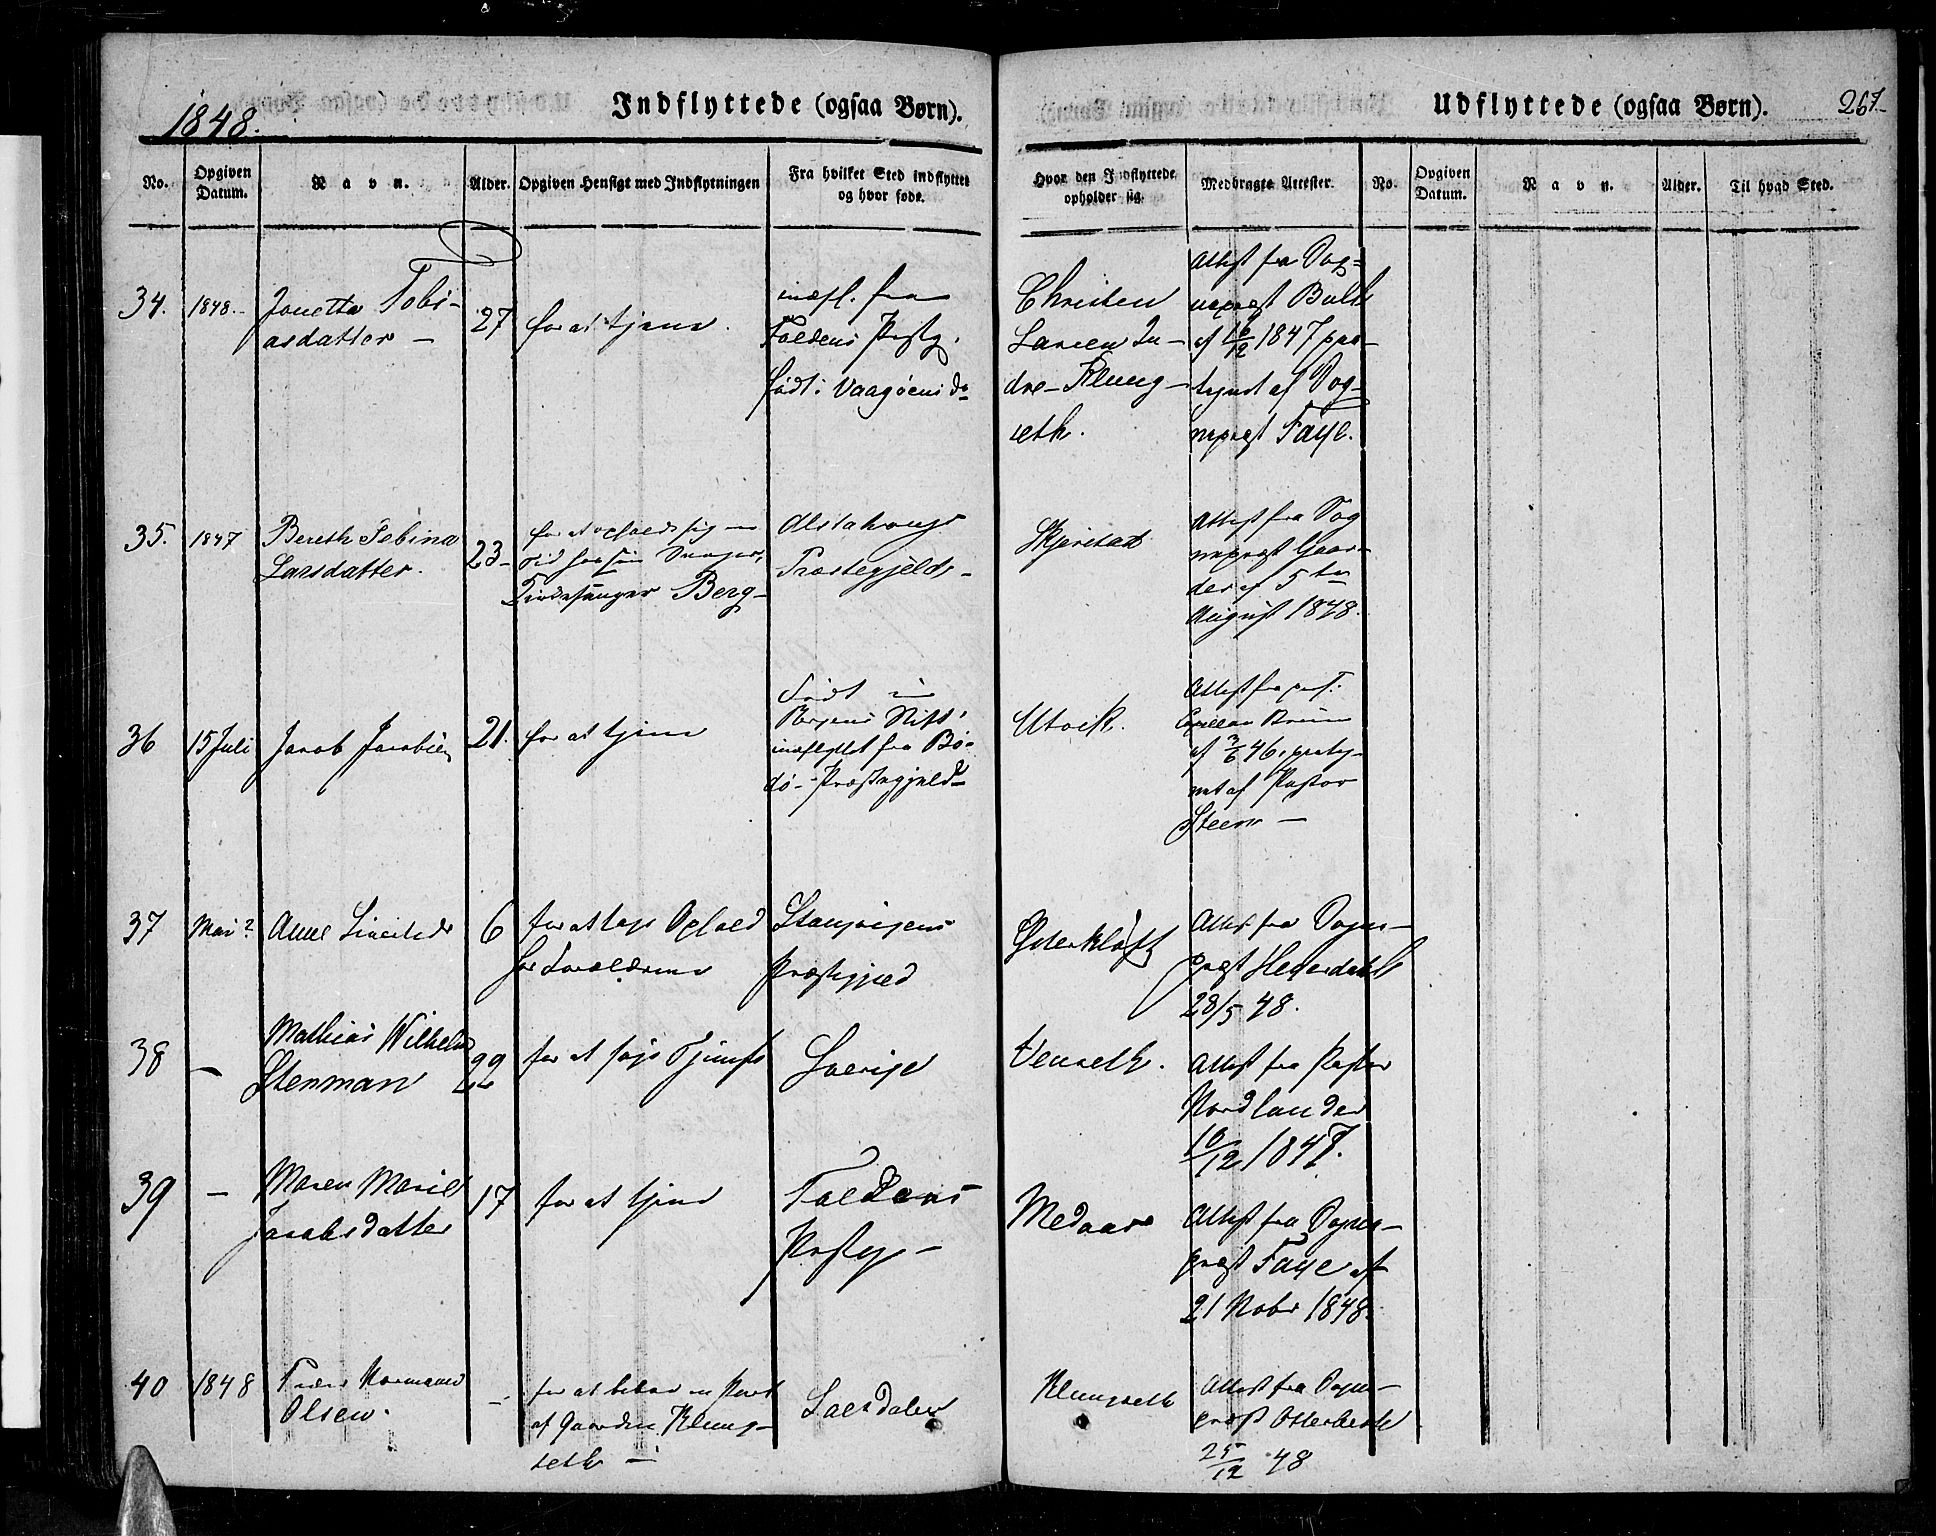 1848.
Indflyttede (ogsaa Børn).
No.
Opgiven Datum.
Navn.
Alder.
Opgiven Hensigt med Indflytningen
Fra hvilket Sted indflyttet og hvor føde.
Udflyttede (ogsaa Børn).
267
Hvor den Indflyttede opholder sig.
Medbragte Attester.
No.
Opgiven Datum.
Navn.
Alder.
Til hvad Sted.
34.
1848.
Jonetta Tobi-
asdatter -
27
for at tjene.
indfl. fra
Foldens Prstg.
født i Vaagøens do
Christen
Larsen In-
dre-Klung-
seth.
Attest fra Sog-
neprest
af 16/12 1847 paa-
tegnet af Sog-
neprest Faye.
35.
1847
Bereth Tobina
Larsdatter.
23-
for at opholde sig
ved
Berg-
Alstahougs
Præstegjeld-
Skjerstad
Attest fra Sog
neprest Gaar-
der af 5te
August 1848.
36
15 Juli
Jacob Jacobsen
21.
for at tjene
Født i
Bergens Stift,
indflyttet fra Bo-
dø-Præstegjeld-
Utvik.
Attest fra
Capellan Bruun
af 3/6 46, paateg-
net af Pastor
Steen -
37
Mai ?
Anne
6
for at tage Ophold
hos Forældrene
Præstegjeld
Ytterkløft
Attest fra Sogne-
prest Heyerdahl
28/5 48.
38
-
Mathias Wilhelm
Stenman
22
for at søge Tjeneste
Sverige
Venseth.
Attest fra Pastor
Nordlander
10/12 1847.
39
-
Maren Marie
Jacobsdatter
17
for at tjene
Foldens
Prstg -
Medaas
Attest fra Sogne-
prest Faye af
21 Nobr 1848.
40
1848
Peder Normann
Olsen.
-
for at
af Gaarden Klung-
seth -
Saltdalen
Klungseth
Attest fra Sogne-
prest Otterbech
25/12 48